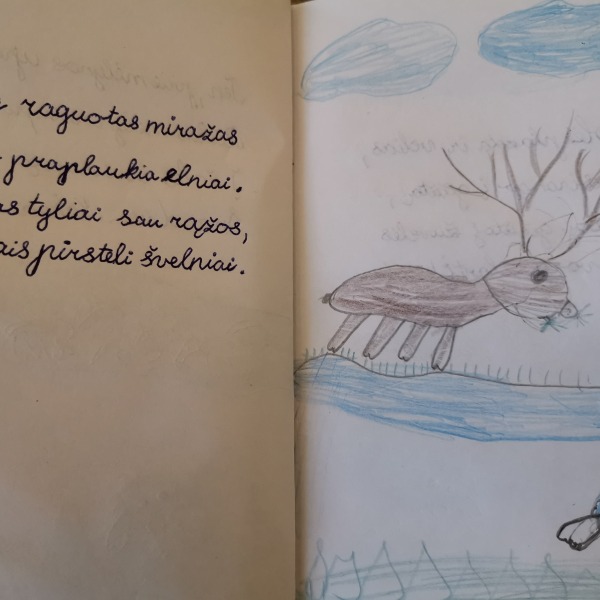 raguotas miražas
praplaukia elniai.
tyliai sau rąžos,
pirsteli švelniai.